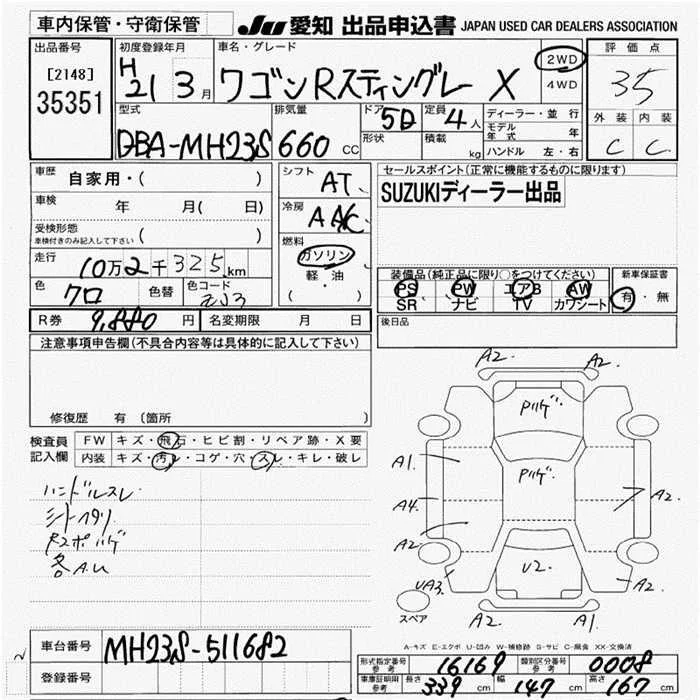 車内保管・守衛保管
JU 愛知 出品申込書 JAPAN USED CAR DEALERS ASSOCIATION
出品番号
[2148]
35351
初度登録年月
H 21 3月
車名・グレード
ワゴンRスティングレー X
2WD
4WD
評価点
3.5
外装 内装
C C
型式
DBA-MH23S
排気量
660 CC
ドア
5D
形状
定員
4人
積載
kg
ディーラー・並行
モデル年式 年
ハンドル 左・右
車歴 自家用・( )
車検 年 月( 日)
受検形態
車検付きのみ記入して下さい ( )
走行 10万2千325km
色 クロ 色替 色コード ZJ3
シフト AT
冷房 AAC
燃料
ガソリン
軽・油
( )
セールスポイント(正常に機能するものに限ります)
SUZUKIディーラー出品
装備品(純正品に限り○をつけてください)
PS PW エアB AW
SR ナビ TV カワシート
新車保証書
有・無
R券 9,880円 名変期限 月 日
後日品
注意事項申告欄(不具合内容等は具体的に記入して下さい)
修復歴 有(箇所 )
検査員記入欄
FW キズ・飛石・ヒビ割・リペア跡・X要
内装 キズ・汚レ・コゲ・穴・スレ・キレ・破レ
ハンドルスレ
シートヘタリ
各A.U
A2. A2.
Pハゲ
A1. Pハゲ
A4. A2.
A2.
U2.
UA3. A2.
A2. A1.
スペア
A-キズ E-エクボ U-凹み W-補修跡 S-サビ C-腐食 XX-交換済
車台番号 MH23S-511682
登録番号
型式指定番号 参考 16169 類別区分番号 参考 0008
車庫証明用 参考 長さ 339cm 幅 147cm 高さ 167cm